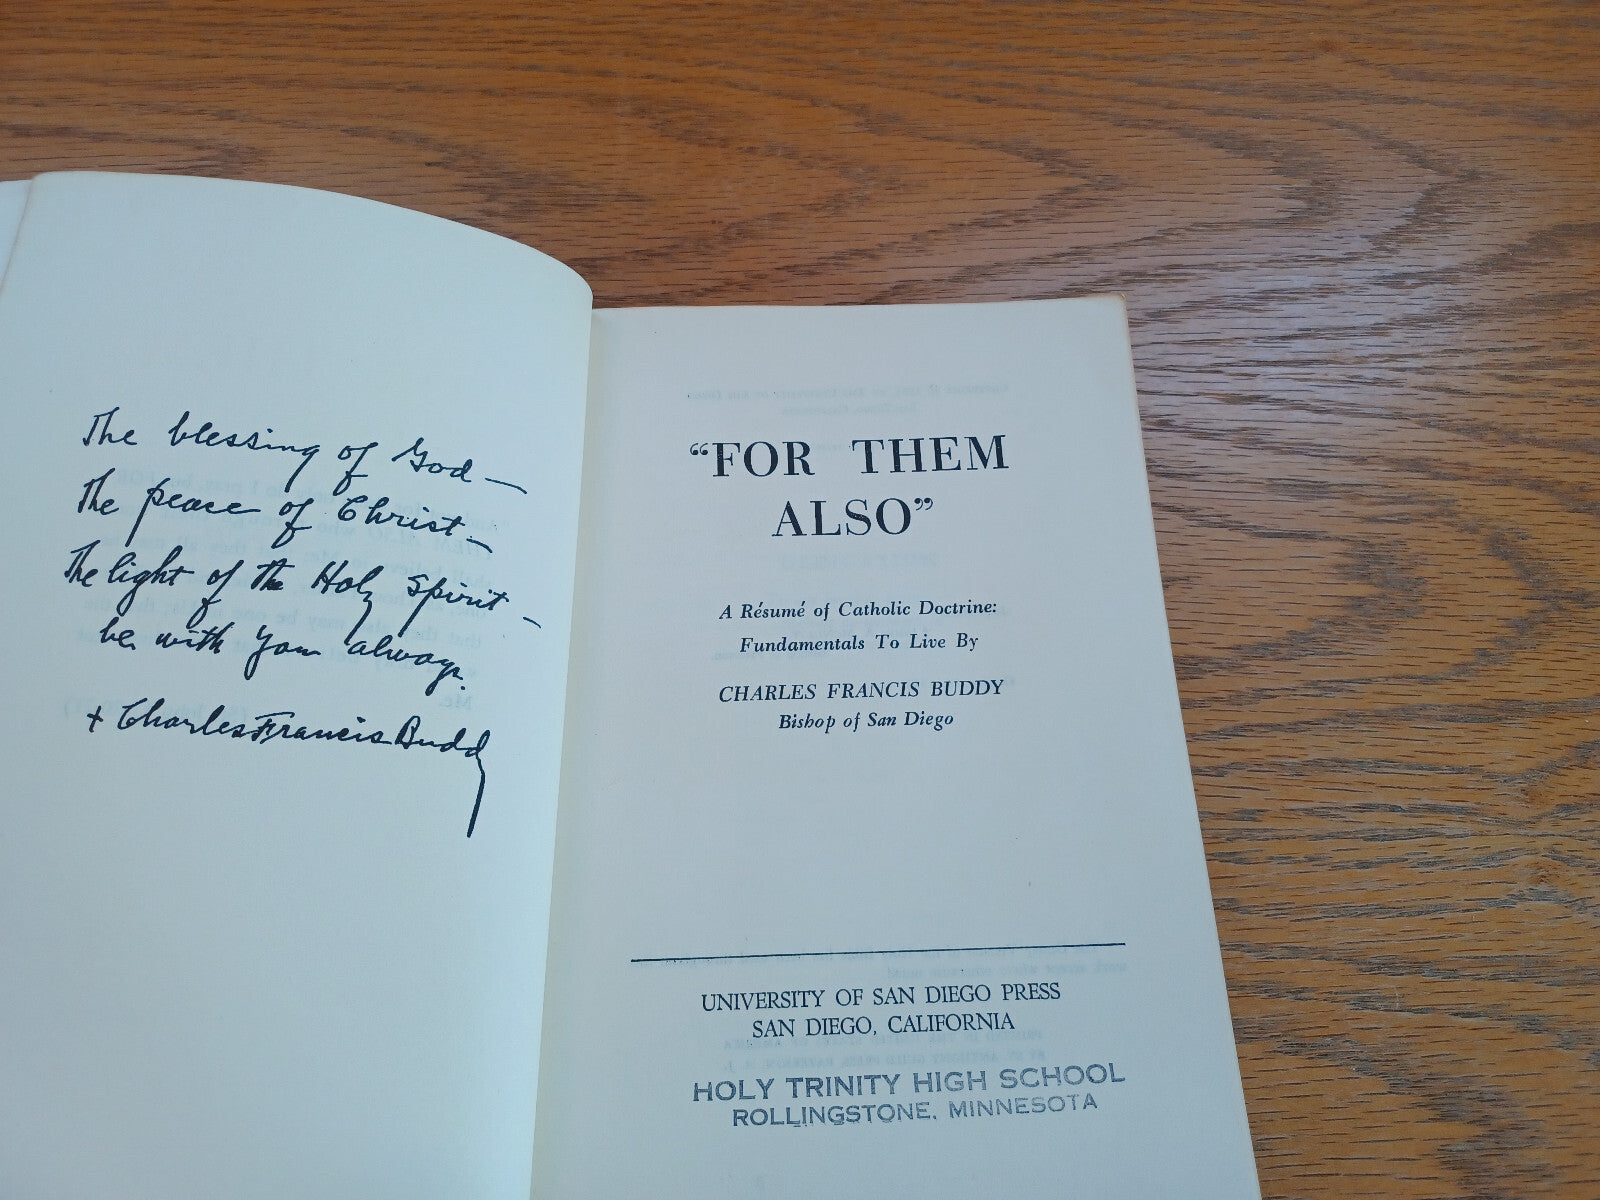 The blessing of God —
The peace of Christ —
The light of the Holy Spirit —
be with you always.
+ Charles Francis Buddy
“FOR THEM
ALSO”
A Résumé of Catholic Doctrine:
Fundamentals To Live By
CHARLES FRANCIS BUDDY
Bishop of San Diego
UNIVERSITY OF SAN DIEGO PRESS
SAN DIEGO, CALIFORNIA
HOLY TRINITY HIGH SCHOOL
ROLLINGSTONE, MINNESOTA